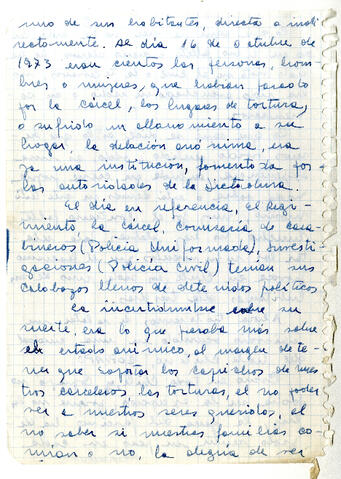 uno de sus habitantes, directa o indi
rectamente. Al día 16 de Octubre de
1973 eran cientos las personas, hom-
bres o mujeres, que habían pasado
por la cárcel, los lugares de tortura,
o sufrido un allanamiento a su
hogar, la delación anónima, era
ya una institución, fomentada por
las autoridades de la Dictadura.
El día en referencia, el Regi-
miento, la cárcel, comisaría de cara-
bineros (Policía Uniformada), Investi-
gaciones (Policía Civil) tenían sus
calabozos llenos de detenidos políticos
La incertidumbre sobre su
suerte, era lo que pesaba más sobre
el estado anímico, al margen de te-
ner que soportar los caprichos de nues
tros carceleros, las torturas, el no poder
ver a nuestros seres queridos, el
no saber si nuestras familias co-
mían o no, la alegría de ser